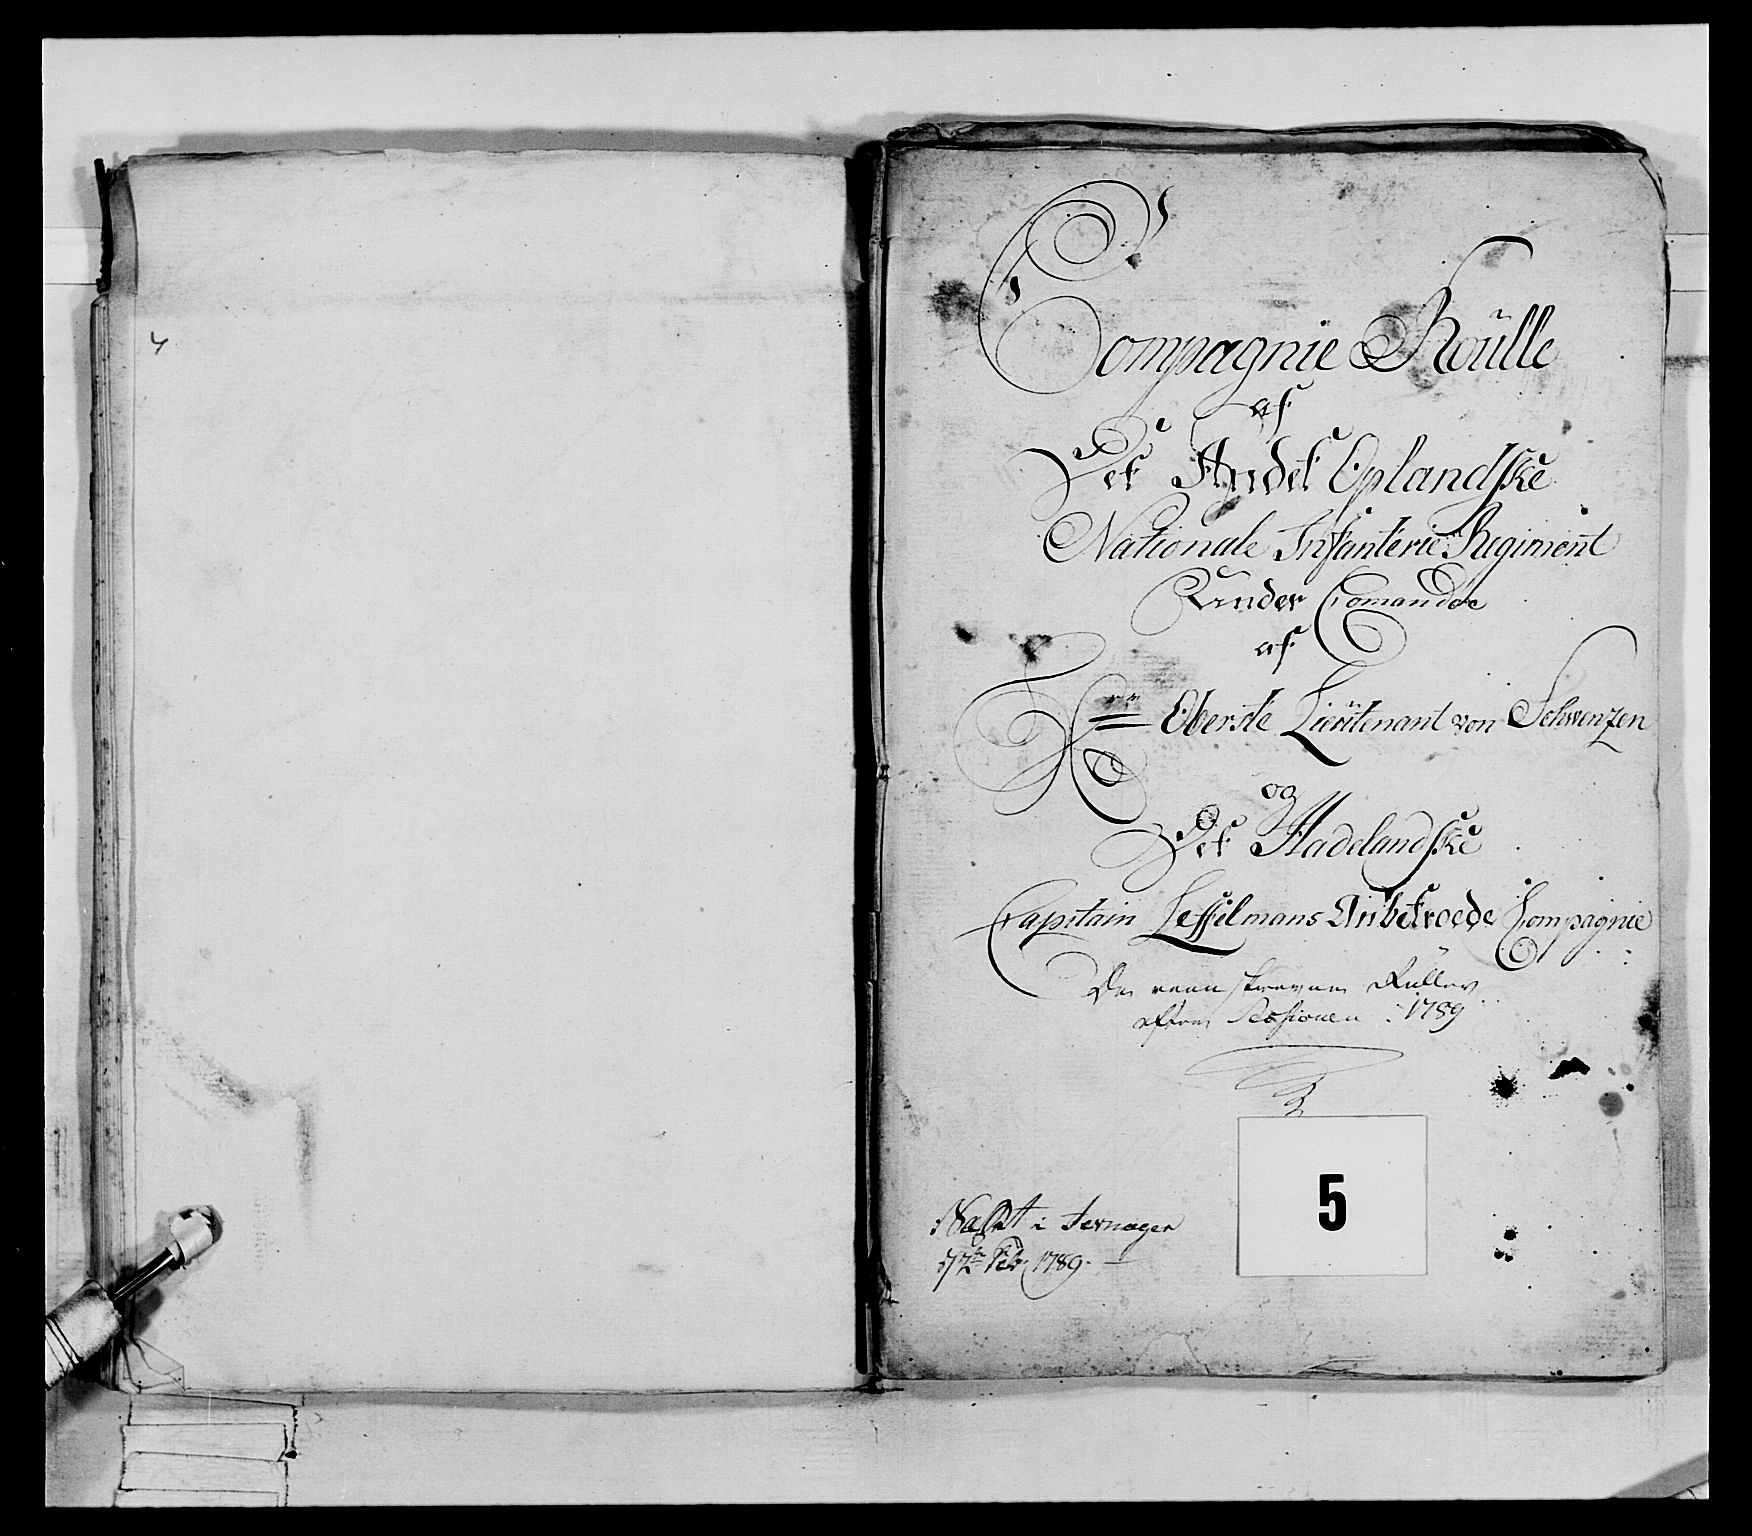 Compagnie Roülle
af
Det Andet Oplandske
Nationale Infanterie Regiment
Under Comandoe
af
Hrn Oberste Lieütenant von Schwenzen
og
Det Hadelandske
Capitain Leffelmans Anbetroede Compagnie
De reenskrevne Ruller
efter Sessionen 1789
5
i Jevnager
Feb. 1789.